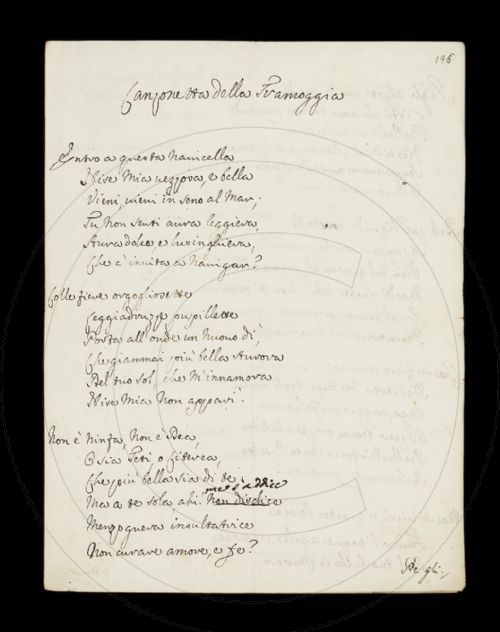 196
Canzonetta della Tramoggia
Entro a questa Navicella
Nive Mia vezzosa, e bella
Vieni, vieni in seno al Mar;
Tu Non senti aura leggiera,
Aura dolce, e lusinghiera,
Che c'invita a Navigar?
Colle fiere orgogliosette
Leggiadruzze pupillette
Porta all'onde un Nuovo dì,
Che giammai più bella Aurora
Del tuo sol, che M'innamora
Nive Mia Non apparì.
Non è Ninfa, Non è Dea,
O sia Teti o Citerea,
Che più bella sia di te;
me s'addice
Ma a te sola, ahi! Non disdice
Menzognera insultatrice
Non curare amore, e fe?
De gli